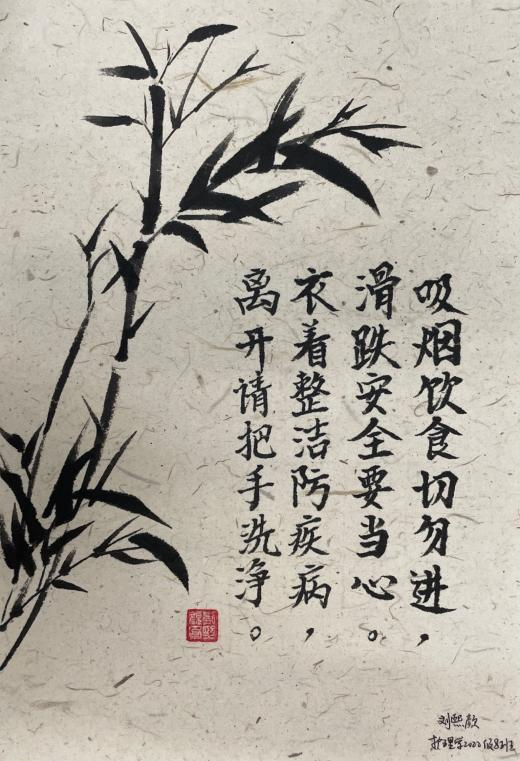 吸烟饮食切勿进，
滑跌安全要当心。
衣着整洁防疾病，
离开请把手洗净。
刘熙颜
护理学2022级8班